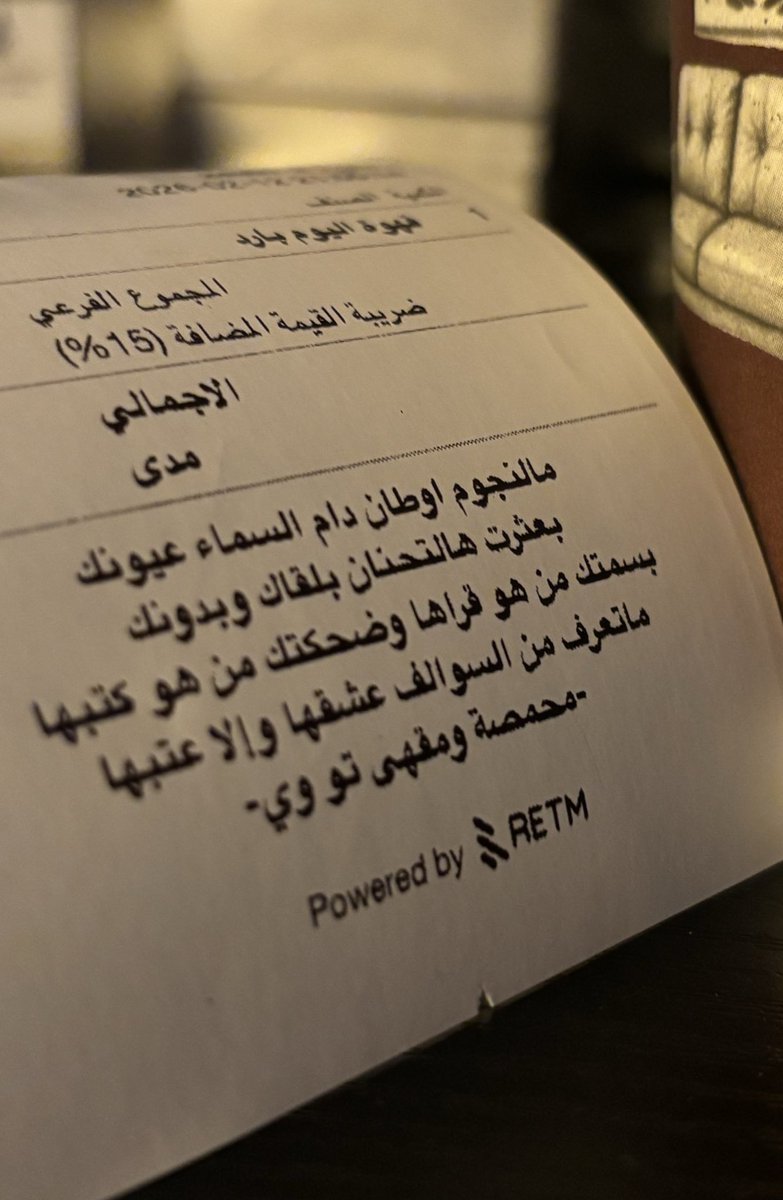 الكمية الصنف
1 قهوة اليوم بارد
المجموع الفرعي
ضريبة القيمة المضافة (15%)
الاجمالي
مدى
مالنجوم اوطان دام السماء عيونك
بعثرت هالتحنان بلقاك وبدونك
بسمتك من هو قراها وضحكتك من هو كتبها
ماتعرف من السوالف عشقها وإلا عتبها
-محمصة ومقهى تو وي-
Powered by RETM